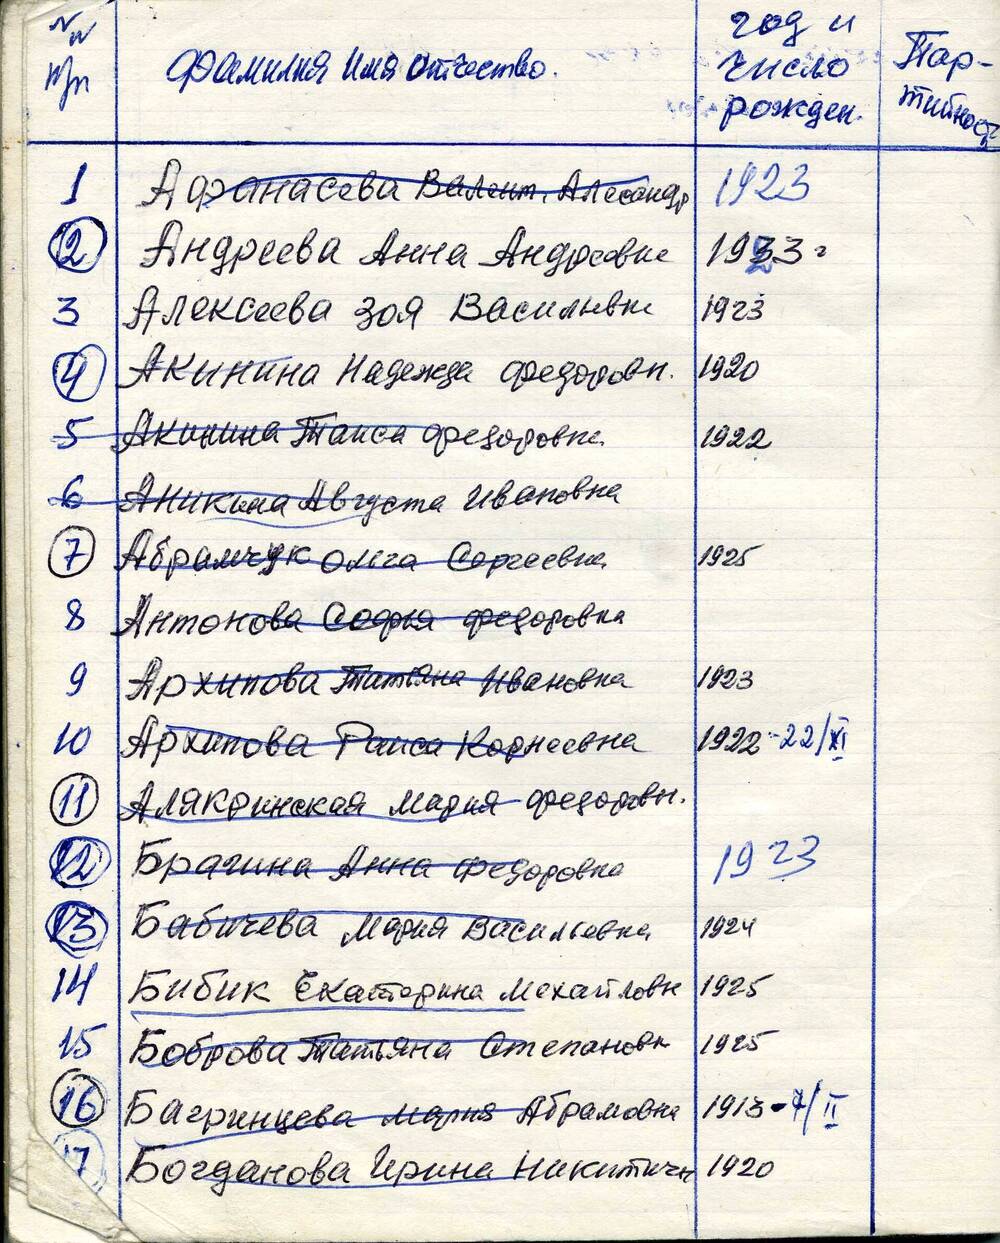 NN п/п Фамилия Имя Отчество. год и число рожден. Партийность
1 Афанасева Валент. Алесандр 1923
2 Андреева Анна Андреевне 1923 г
3 Алексеева Зоя Васильвне 1923
4 Акинина Надежда Федоровн. 1920
5 Акинина Таиса Федоровна 1922
6 Аникина Августа Ивановна
7 Абрамчук Ольга Сергеевна 1925
8 Антонова Софья Федоровна
9 Архипова Татьяна Ивановна 1923
10 Архипова Раиса Корнеевна 1922-22/XI
11 Алякринская Мария Федоровн.
12 Брагина Анна Федоровна 1923
13 Бабичева Мария Васильевна 1924
14 Бибик Екатерина Михайловн 1925
15 Боброва Татьяна Степановн 1925
16 Багринцева Мария Абрамовна 1913-7/II
17 Богданова Ирина Никитичн 1920